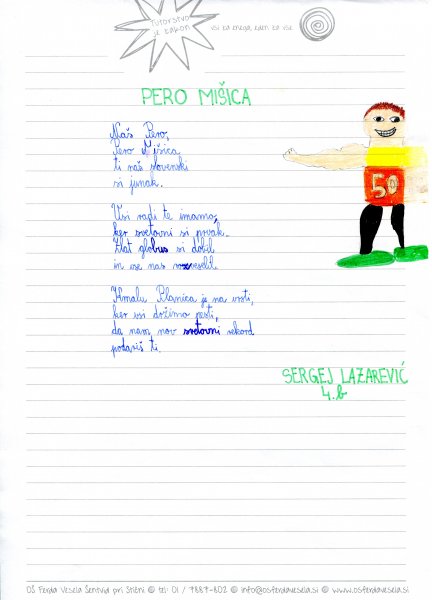 Tutorstvo
je zakon
vsi za enega, eden za vse
PERO MIŠICA
Naš Pero,
Pero Mišica
ti naš slovenski
si junak.
Vsi radi te imamo,
ker svetovni si prvak.
Zlat globus si dobil
in vse nas razveselil.
Kmalu Planica je na vrsti,
ker vsi držimo pesti,
da nam nov svetovni rekord
podariš ti.
50
SERGEJ LAZAREVIĆ
4.b
OŠ Ferda Vesela Šentvid pri Stični © tel: 01 / 7887-802 © info@osferdavesela.si © www.osferdavesela.si